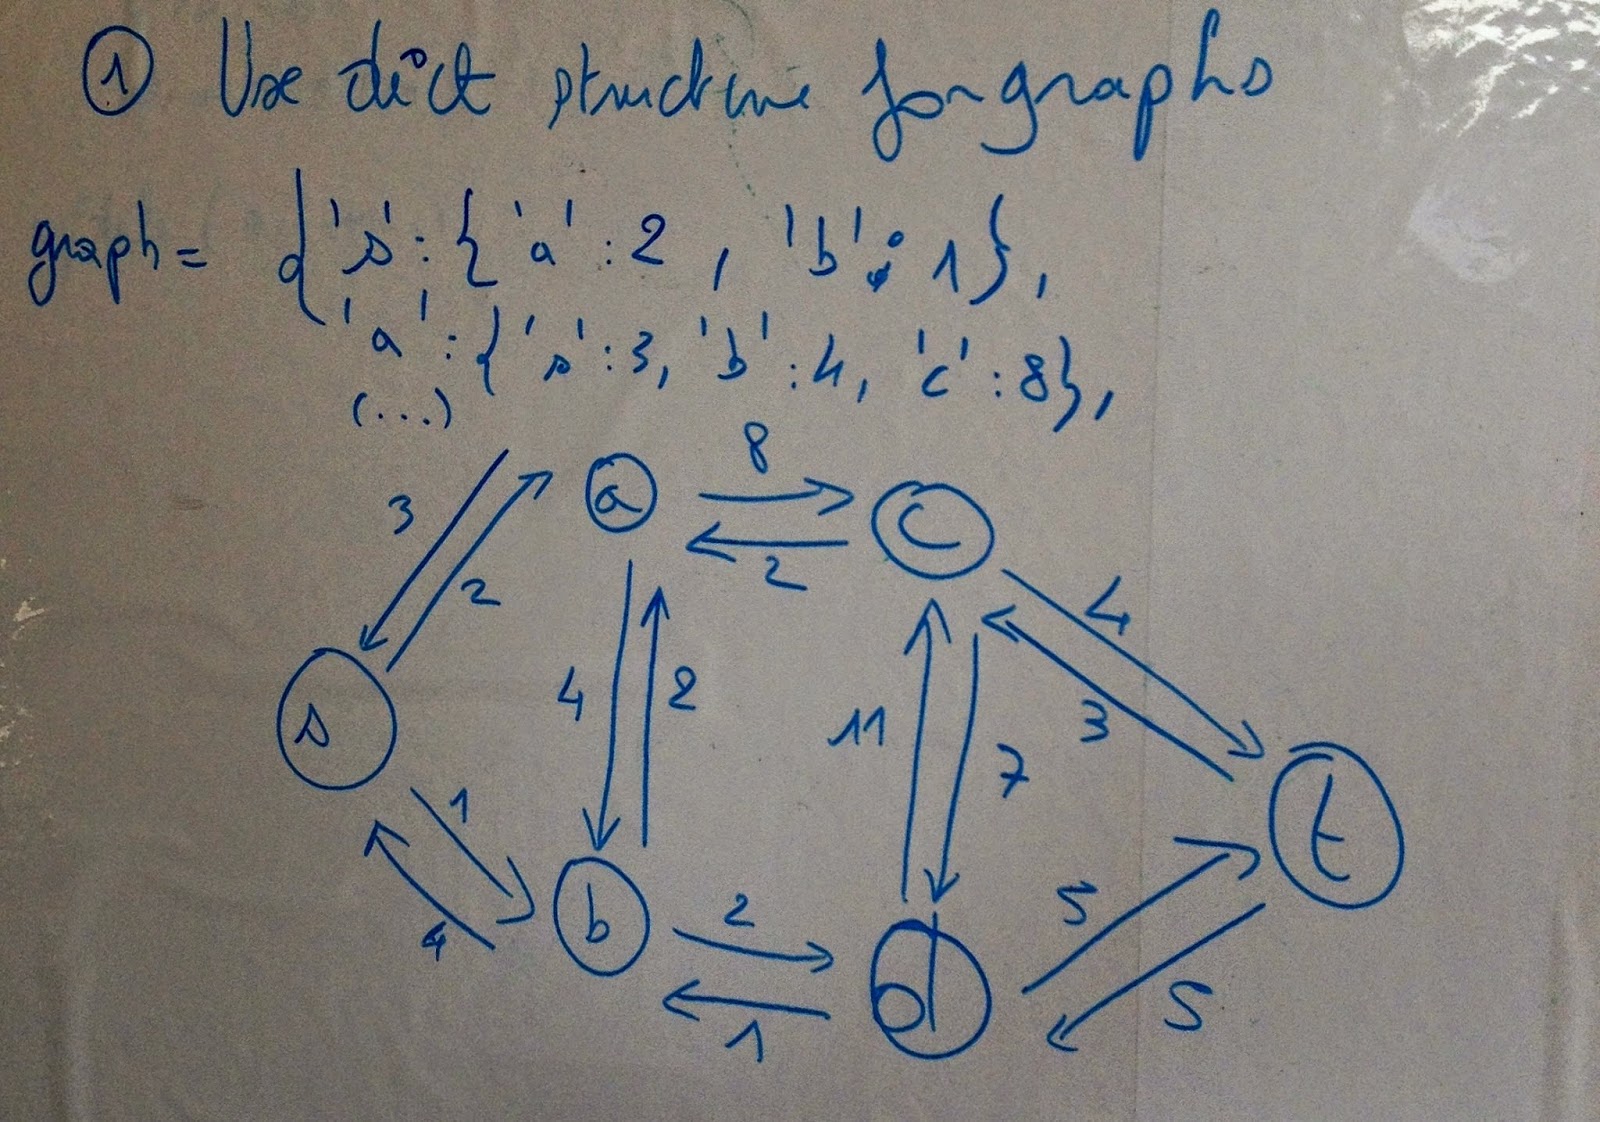 ① Use dict structure for graphs
graph = {'s':{'a':2, 'b':1},
'a':{'s':3, 'b':4, 'c':8},
(...)
8
3
a
c
2
2
4
4
2
s
11
3
7
1
t
4
b
2
5
d
1
5